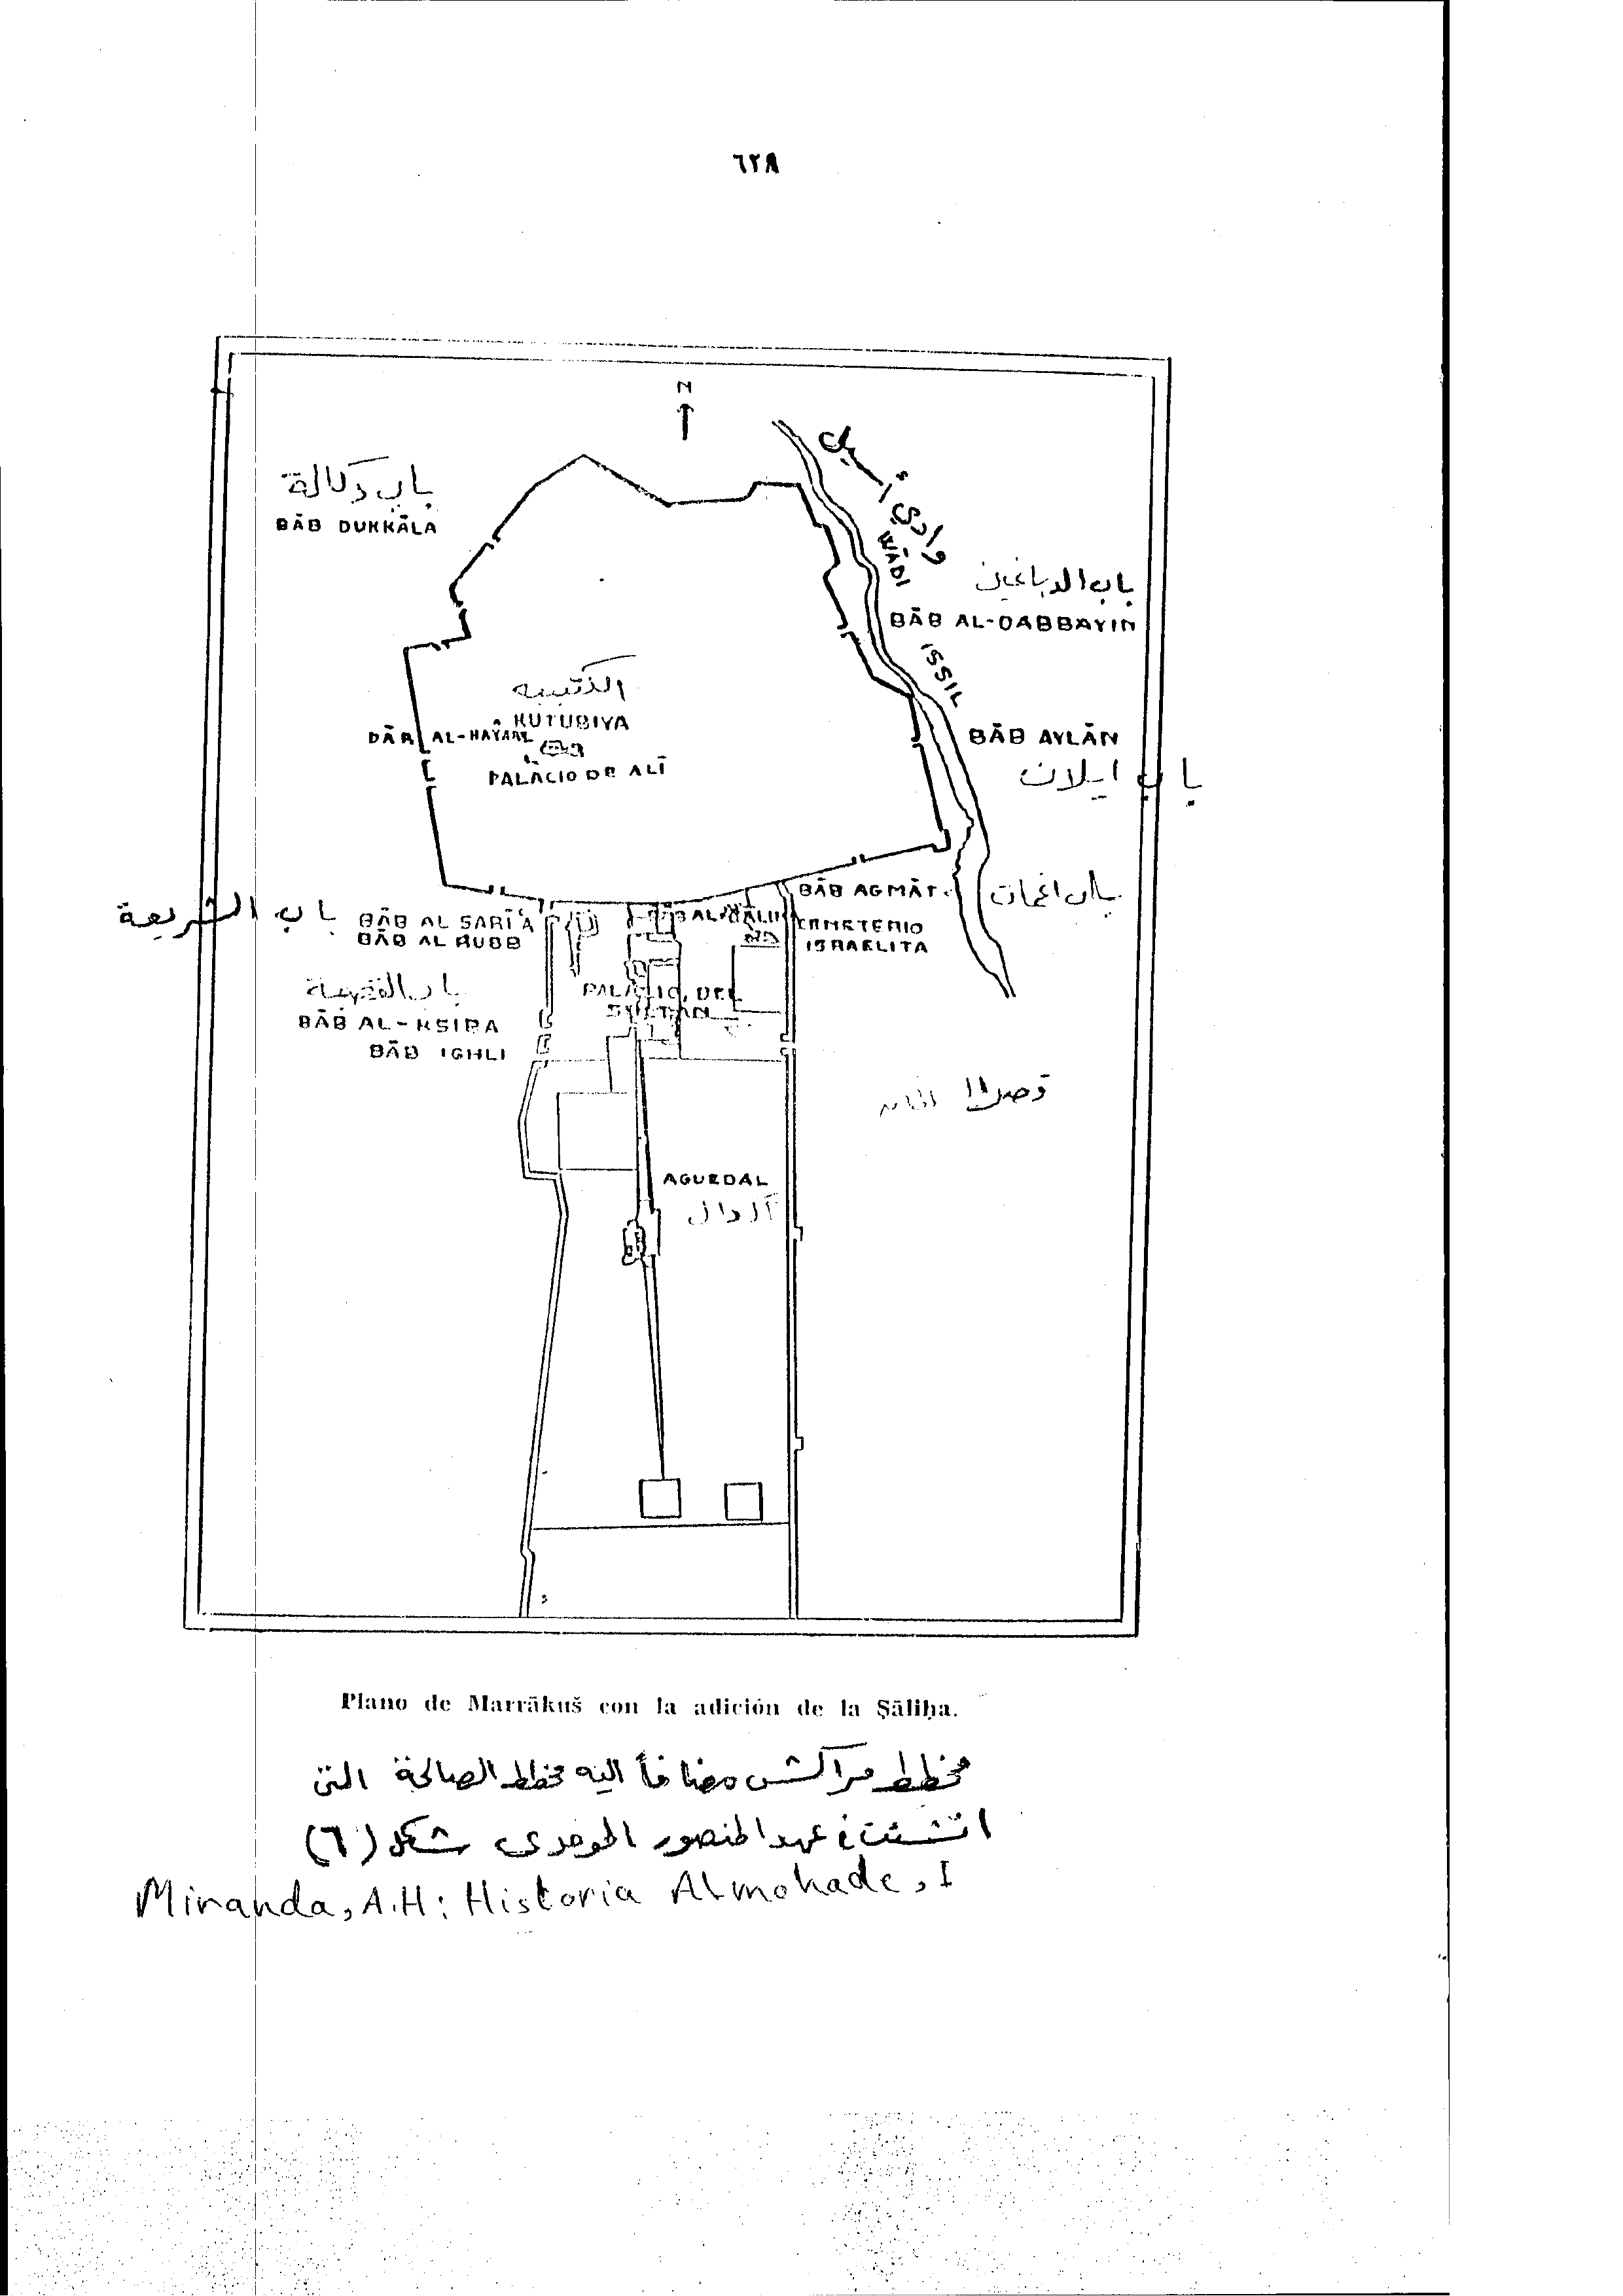 ٦٢٨
N
باب دكالة
BĀB DUKKĀLA
وادي أسيل
WĀDI ISSIL
باب الدباغين
BĀB AL-DABBAYIN
الكتبيه
KUTUBIYA
DĀR AL-HAYARE
PALACIO DE ALĪ
BĀB AYLĀN
باب ايلان
BĀB AGMĀT
باب اغمات
باب الشريعة
BĀB AL SARĪ'A
BĀB AL RUBB
CEMETERIO
ISRAELITA
باب القصيبة
BĀB AL-KSIBA
BĀB IGHLI
PALACIO DEL
SULTAN
قصر
AGUEDAL
Plano de Marrākuš con la adición de la Ṣāliḥa.
مخطط مراكش مضافاً اليه مخطط الصالحة التى
انشئت في عهد المنصور الموحدى شكل (٦)
Miranda, A.H: Historia Almohade, I